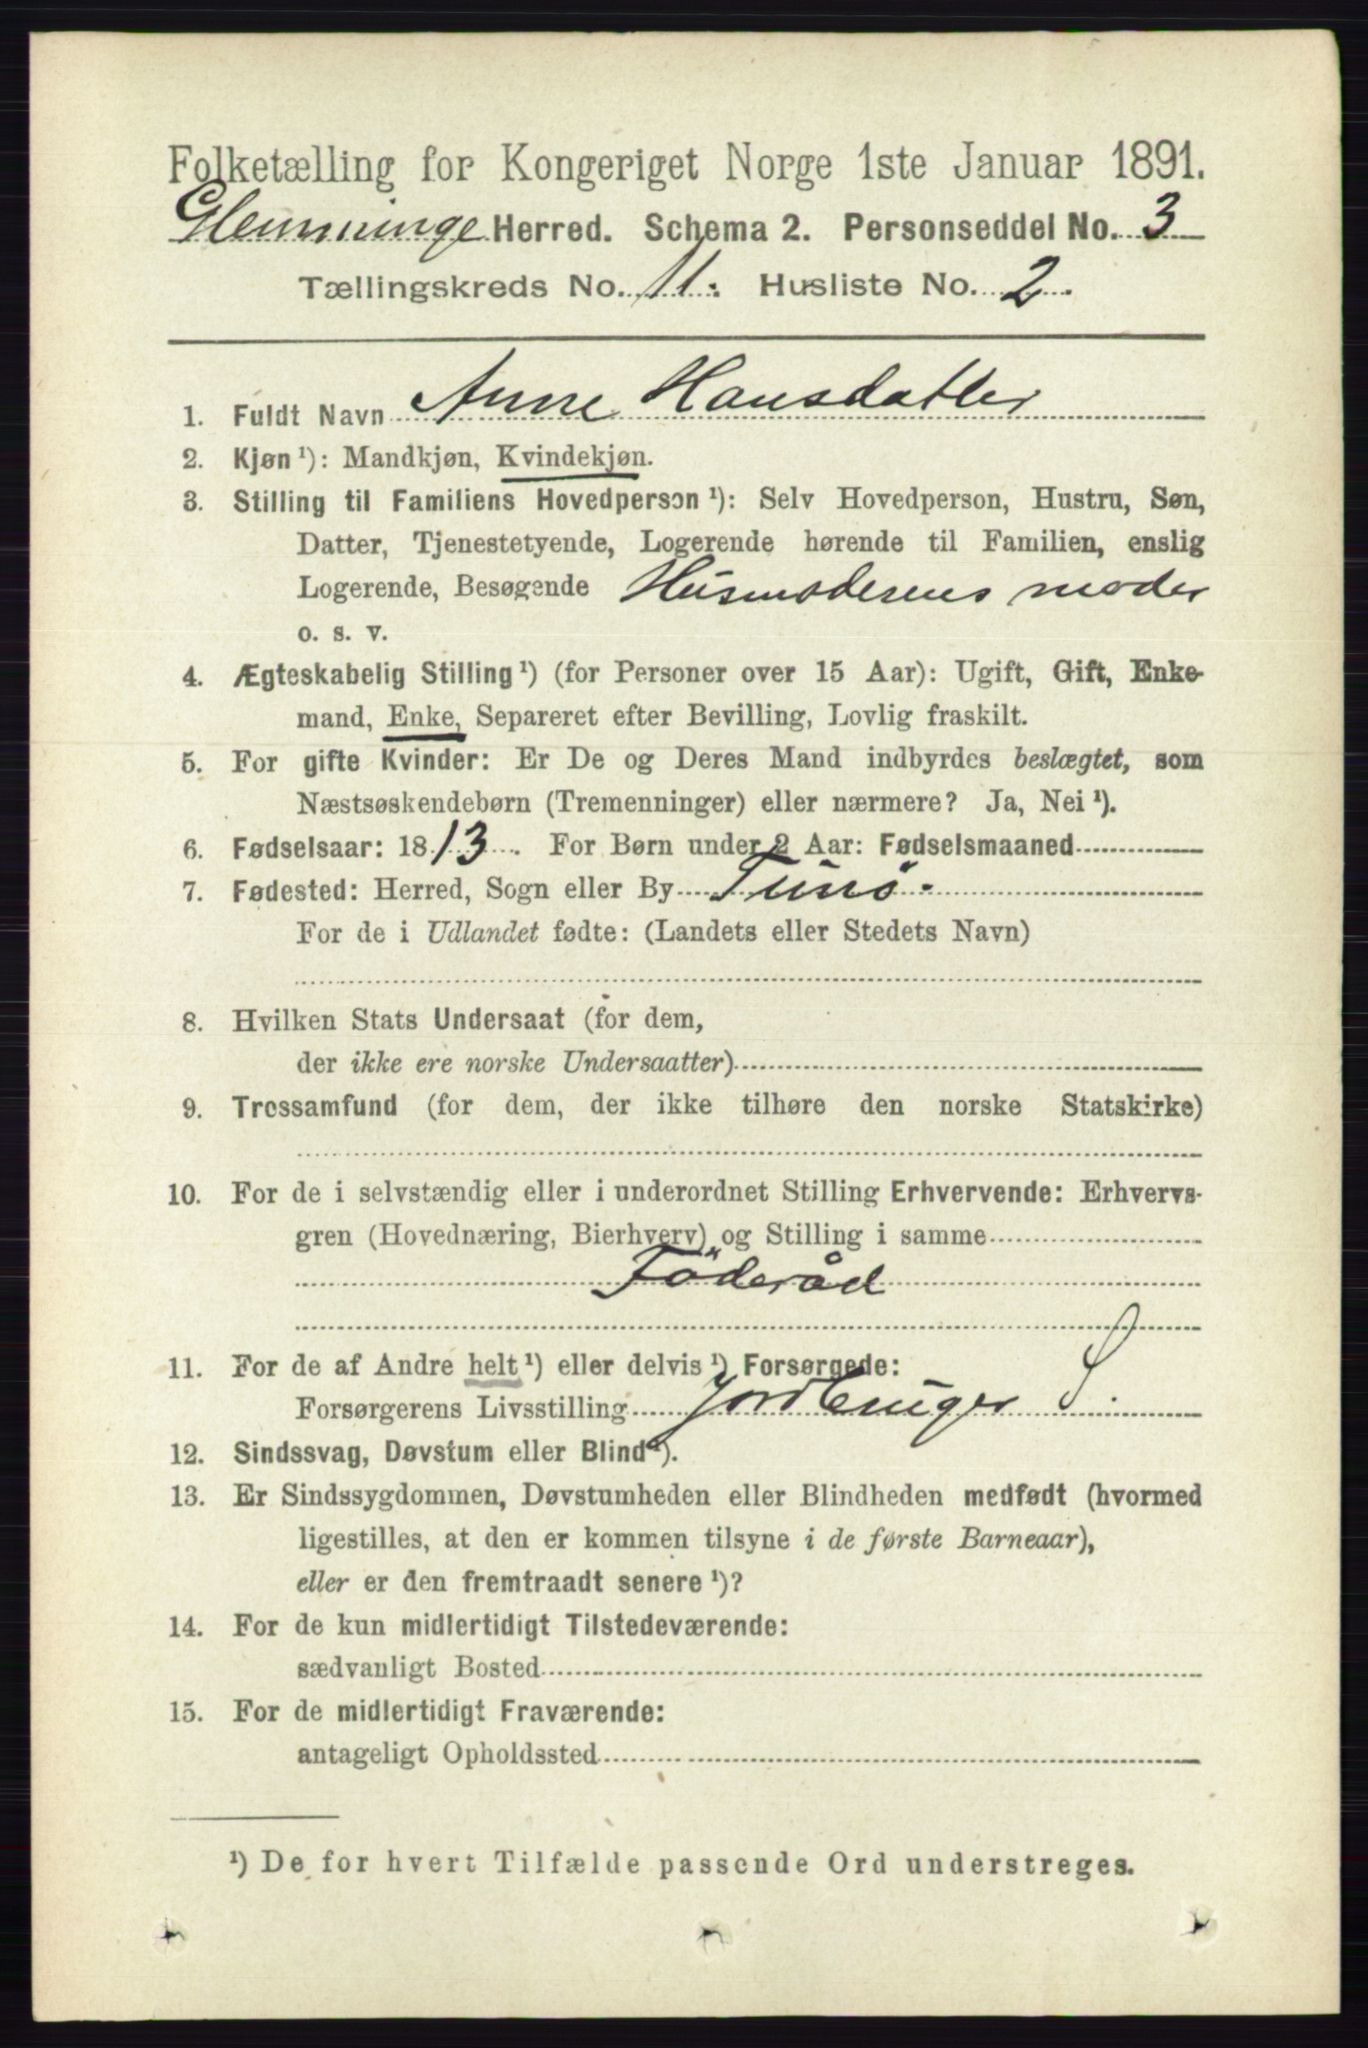 Folketælling for Kongeriget Norge 1ste Januar 1891.
Glemminge Herred. Schema 2. Personseddel No. 3
Tællingskreds No. 11. Husliste No. 2.
1. Fuldt Navn Anne Hansdatter
2. Kjøn ¹): Mandkjøn, Kvindekjøn.
3. Stilling til Familiens Hovedperson ¹): Selv Hovedperson, Hustru, Søn,
Datter, Tjenestetyende, Logerende hørende til Familien, enslig
Logerende, Besøgende Husmoderens moder
o. s. v.
4. Ægteskabelig Stilling ¹) (for Personer over 15 Aar): Ugift, Gift, Enke-
mand, Enke, Separeret efter Bevilling, Lovlig fraskilt.
5. For gifte Kvinder: Er De og Deres Mand indbyrdes beslægtet, som
Næstsøskendebørn (Tremenninger) eller nærmere? Ja, Nei ¹).
6. Fødselsaar: 1813. For Børn under 2 Aar: Fødselsmaaned
7. Fødested: Herred, Sogn eller By Tunø.
For de i Udlandet fødte: (Landets eller Stedets Navn)
8. Hvilken Stats Undersaat (for dem,
der ikke ere norske Undersaatter)
9. Trossamfund (for dem, der ikke tilhøre den norske Statskirke)
10. For de i selvstændig eller i underordnet Stilling Erhvervende: Erhvervs-
gren (Hovednæring, Bierhverv) og Stilling i samme
Föderåd
11. For de af Andre helt ¹) eller delvis ¹) Forsørgede:
Forsørgerens Livsstilling Jordbruger S.
12. Sindssvag, Døvstum eller Blind ¹).
13. Er Sindssygdommen, Døvstumheden eller Blindheden medfødt (hvormed
ligestilles, at den er kommen tilsyne i de første Barneaar),
eller er den fremtraadt senere ¹)?
14. For de kun midlertidigt Tilstedeværende:
sædvanligt Bosted
15. For de midlertidigt Fraværende:
antageligt Opholdssted
¹) De for hvert Tilfælde passende Ord understreges.